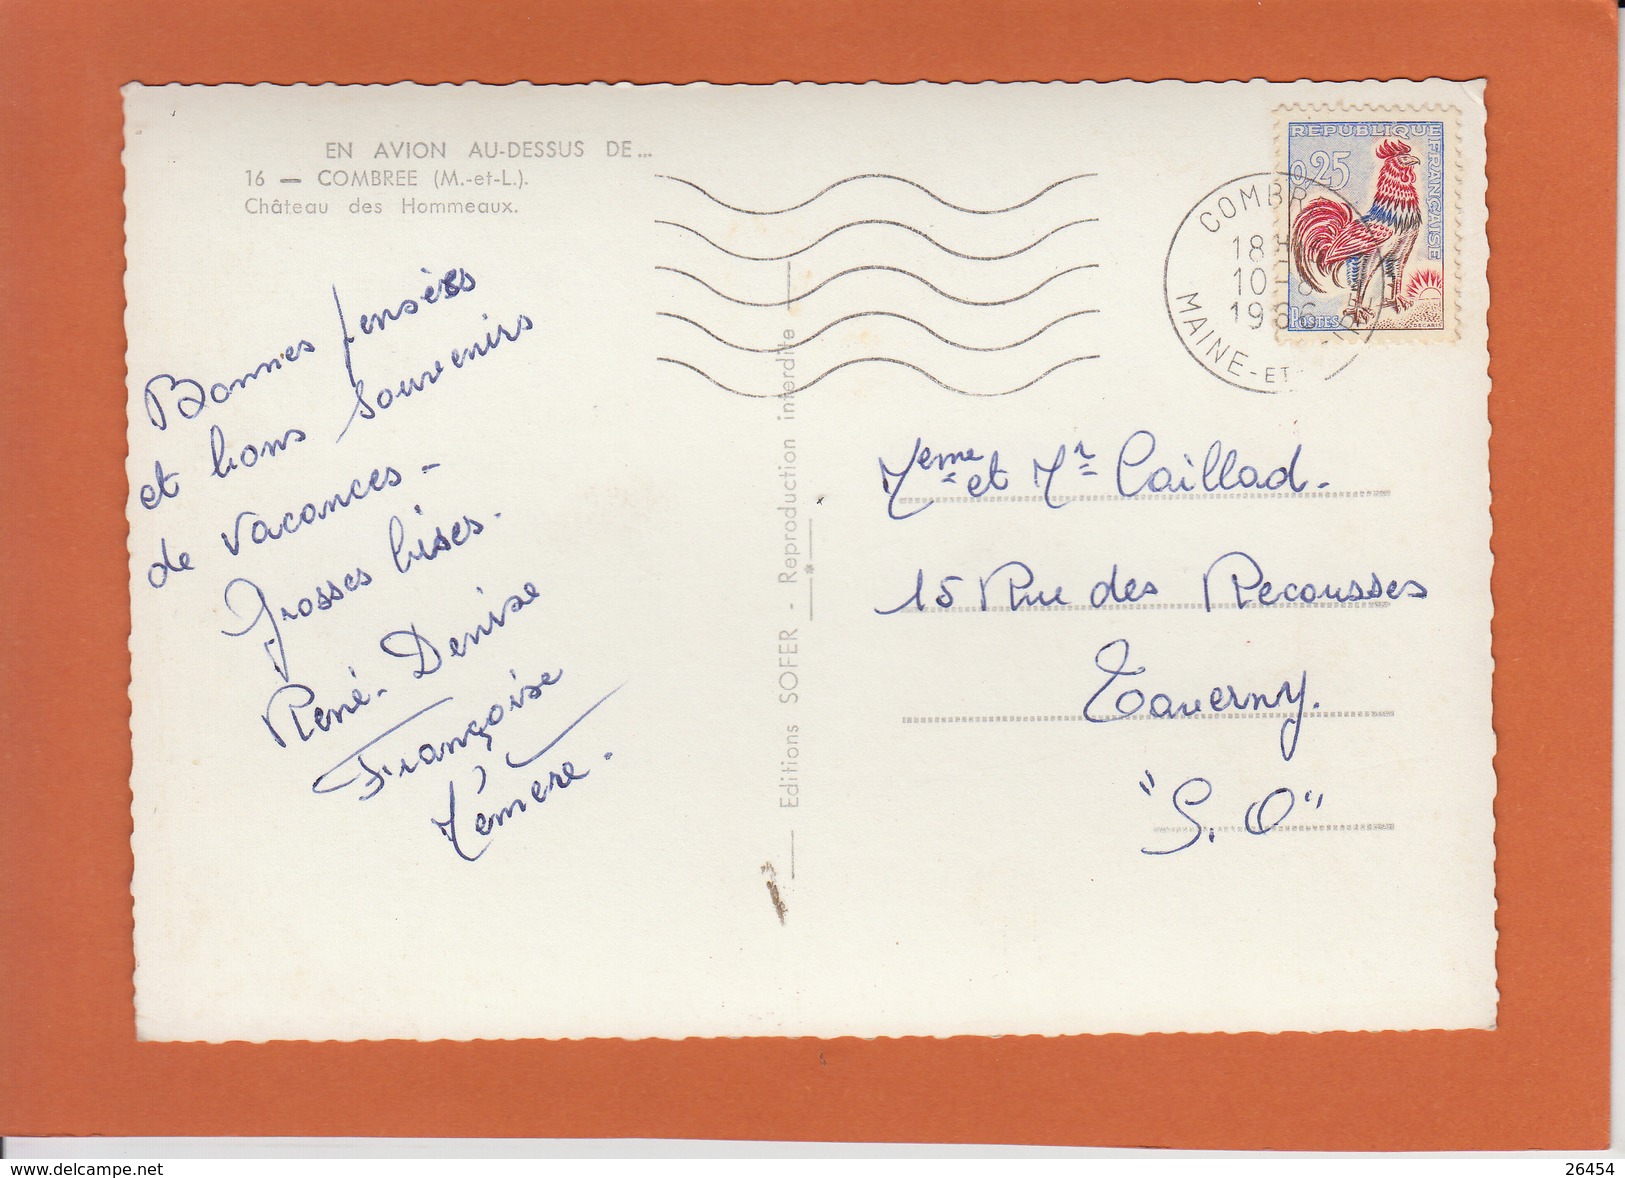 EN AVION AU-DESSUS DE...
16 — COMBREE (M.-et-L.).
Château des Hommeaux.
Bonnes pensées
et bons souvenirs
de vacances -
Grosses bises.
René - Denise
Françoise
Mémère.
Editions SOFER - Reproduction interdite
REPUBLIQUE FRANÇAISE
0,25
POSTES
DECARIS
COMBR
18H
10-8
1966
MAINE-ET
Meme et Mr Caillad.
15 Rue des Recousses
Taverny.
"S. O"
www.delcampe.net
26454